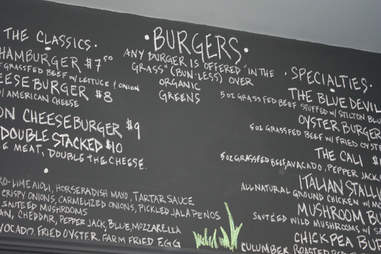 THE CLASSICS
HAMBURGER $7.50
GRASSFED BEEF W/ LETTUCE & ONION
EESEBURGER $8
W/ AMERICAN CHEESE
ON CHEESEBURGER $9
DOUBLE STACKED $10
E MEAT, DOUBLE THE CHEESE.
BURGERS
ANY BURGER IS OFFERED "IN THE
GRASS" (BUN-LESS) OVER
ORGANIC
GREENS
SPECIALTIES
THE BLUE DEVIL
5 OZ GRASSFED BEEF STUFFED W/ STILTON BLU
OYSTER BURGER
GRASSFED BEEF W/ FRIED OYSTE
THE CALI $
5 OZ GRASSFED BEEF, AVOCADO, PEPPER JACK
ITALIAN STALLI
ALL NATURAL GROUND CHICKEN W/
MUSHROOM BU
SAUTEED WILD MUSHROOMS W/
CHICKPEA BU
CUCUMBER, ROASTED RED
RO-LIME AIOLI, HORSERADISH MAYO, TARTAR SAUCE
CRISPY ONIONS, CARMELIZED ONIONS, PICKLED JALAPENOS
SAUTEED MUSHROOMS
AN, CHEDDAR, PEPPER JACK, BLUE, MOZZARELLA
VOCADO FRIED OYSTER FARM FRIED EGG